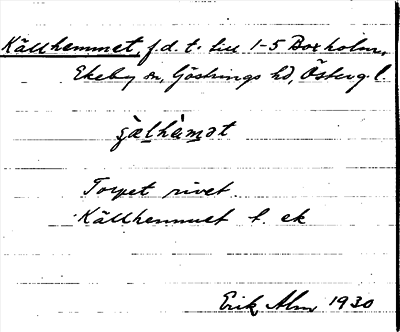 Källhemmet, f.d. t. till 1-5 Boxholm,
Ekeby sn, Göstrings hd, Östergl.
ɕä̀lhèmət
Torpet rivet.
Källhemmet t. ek
Erik Alm 1930